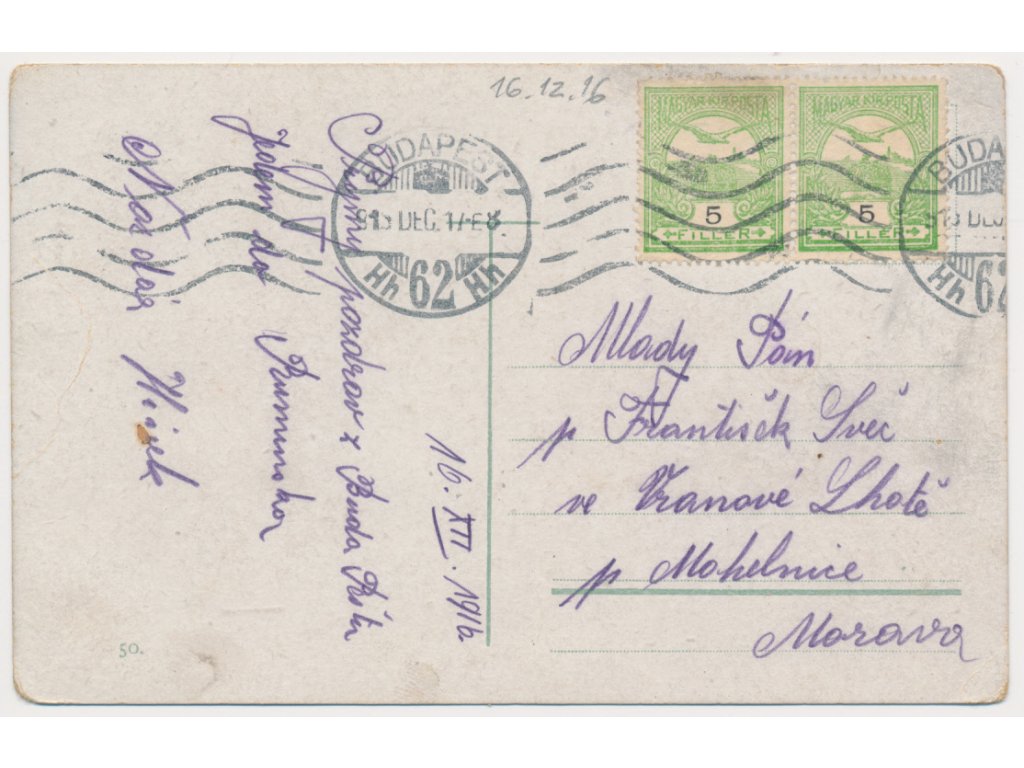 16.12.16
MAGYAR KIR. POSTA
5
FILLÉR
MAGYAR KIR. POSTA
5
FILLÉR
BUDAPEST
915 DEC. 17
Hh 62 Hh
BUDA
915 DEC
Hh 62
pozdrav z Buda Pešti
jedem do Rumunska
Nazdar
16. XII. 1916.
Mlady Pán
p František Švéc
ve Vranové Lhotě
p Mohelnice
Morava
50.